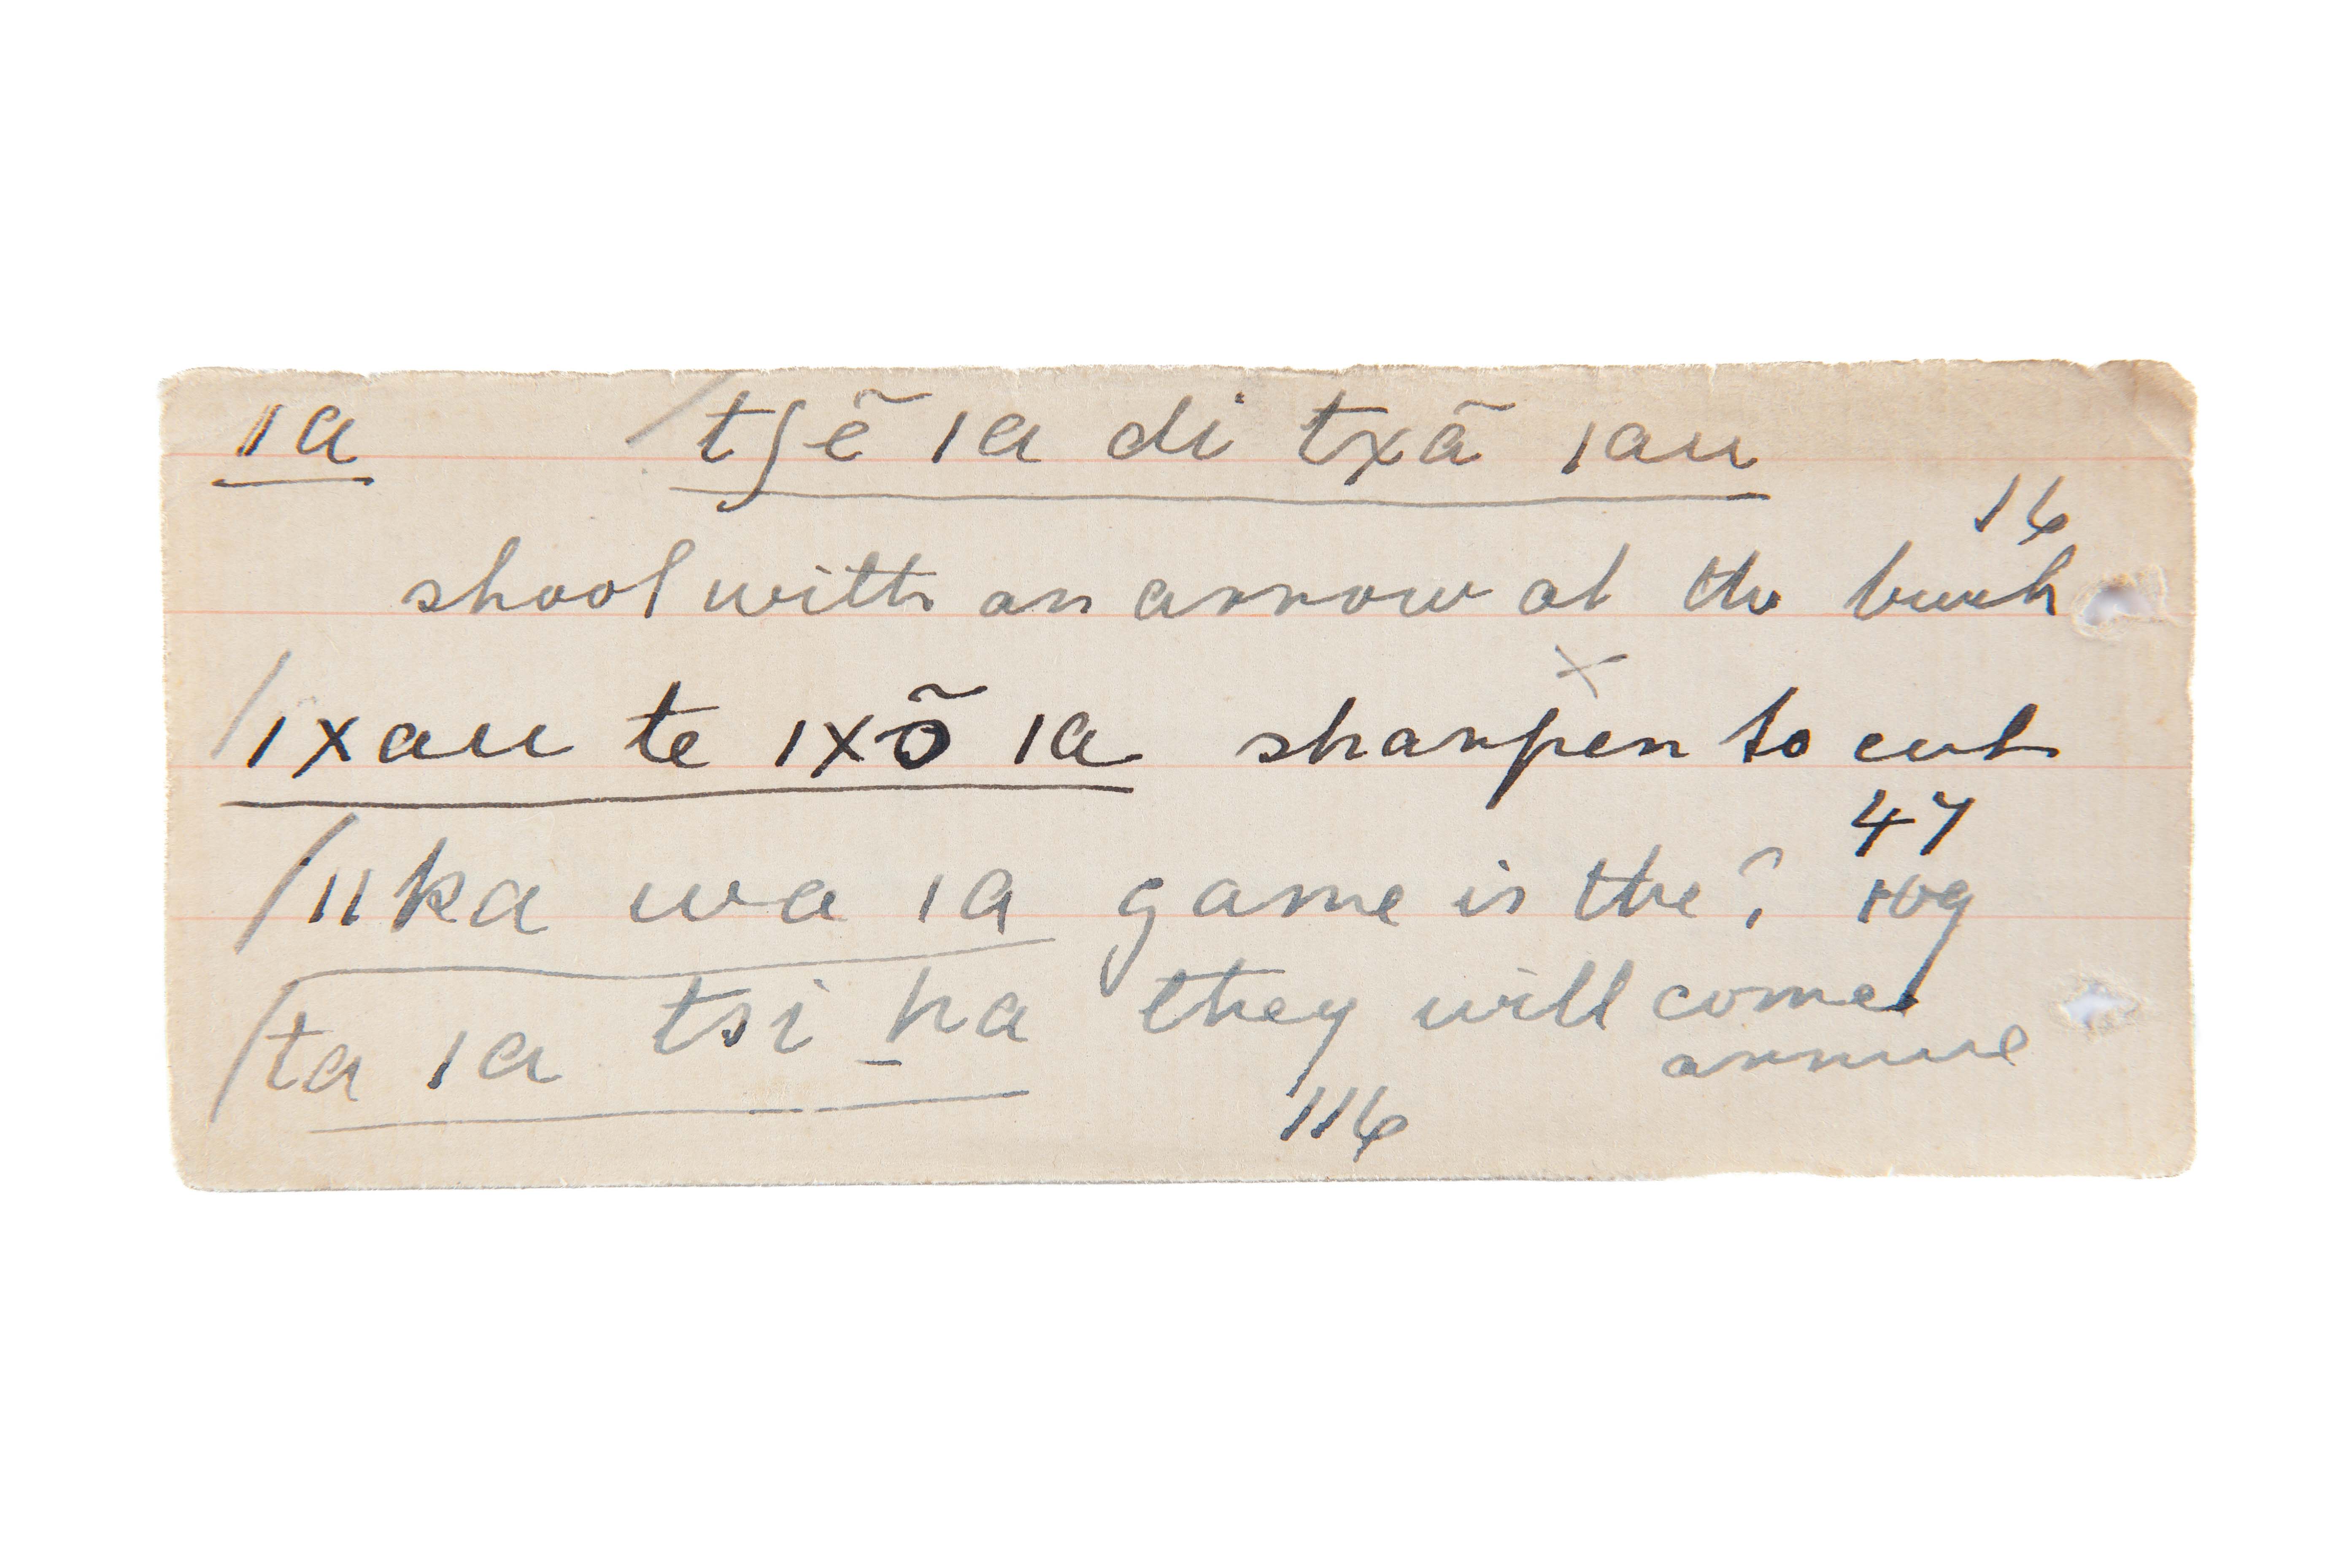 ǀa /tʃẽ ǀa di txã ǀau
16
shoot with an arrow at the bush
×
/ǀxau te ǀxõ ǀa sharpen to cut
47
/ǁka wa ǀa game is the? 109
/ta ǀa tsi ha they will come
116